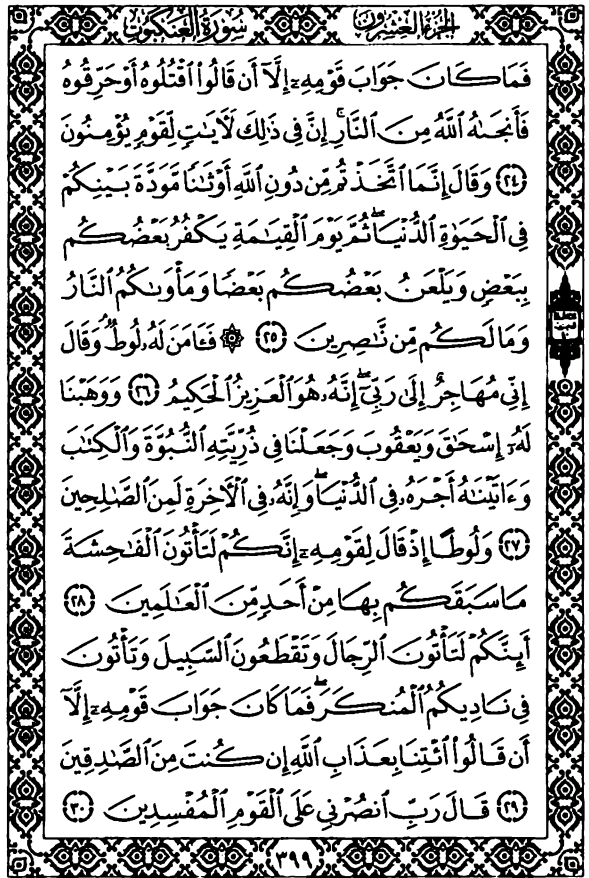 سُورَةُ العَنكَبُوتِ
الجُزْءُ العِشْرُونَ
فَمَا كَانَ جَوَابَ قَوْمِهِۦٓ إِلَّآ أَن قَالُوا۟ ٱقْتُلُوهُ أَوْ حَرِّقُوهُ
فَأَنجَىٰهُ ٱللَّهُ مِنَ ٱلنَّارِ ۚ إِنَّ فِى ذَٰلِكَ لَـَٔايَـٰتٍ لِّقَوْمٍ يُؤْمِنُونَ
٢٤ وَقَالَ إِنَّمَا ٱتَّخَذْتُم مِّن دُونِ ٱللَّهِ أَوْثَـٰنًا مَّوَدَّةَ بَيْنِكُمْ
فِى ٱلْحَيَوٰةِ ٱلدُّنْيَا ۖ ثُمَّ يَوْمَ ٱلْقِيَـٰمَةِ يَكْفُرُ بَعْضُكُم
بِبَعْضٍ وَيَلْعَنُ بَعْضُكُم بَعْضًا وَمَأْوَىٰكُمُ ٱلنَّارُ
وَمَا لَكُم مِّن نَّـٰصِرِينَ ٢٥ ۞ فَـَٔامَنَ لَهُۥ لُوطٌ ۘ وَقَالَ
إِنِّى مُهَاجِرٌ إِلَىٰ رَبِّىٓ ۖ إِنَّهُۥ هُوَ ٱلْعَزِيزُ ٱلْحَكِيمُ ٢٦ وَوَهَبْنَا
لَهُۥٓ إِسْحَـٰقَ وَيَعْقُوبَ وَجَعَلْنَا فِى ذُرِّيَّتِهِ ٱلنُّبُوَّةَ وَٱلْكِتَـٰبَ
وَءَاتَيْنَـٰهُ أَجْرَهُۥ فِى ٱلدُّنْيَا ۖ وَإِنَّهُۥ فِى ٱلْـَٔاخِرَةِ لَمِنَ ٱلصَّـٰلِحِينَ
٢٧ وَلُوطًا إِذْ قَالَ لِقَوْمِهِۦٓ إِنَّكُمْ لَتَأْتُونَ ٱلْفَـٰحِشَةَ
مَا سَبَقَكُم بِهَا مِنْ أَحَدٍ مِّنَ ٱلْعَـٰلَمِينَ ٢٨
أَئِنَّكُمْ لَتَأْتُونَ ٱلرِّجَالَ وَتَقْطَعُونَ ٱلسَّبِيلَ وَتَأْتُونَ
فِى نَادِيكُمُ ٱلْمُنكَرَ ۖ فَمَا كَانَ جَوَابَ قَوْمِهِۦٓ إِلَّآ
أَن قَالُوا۟ ٱئْتِنَا بِعَذَابِ ٱللَّهِ إِن كُنتَ مِنَ ٱلصَّـٰدِقِينَ
٢٩ قَالَ رَبِّ ٱنصُرْنِى عَلَى ٱلْقَوْمِ ٱلْمُفْسِدِينَ ٣٠
٣٩٩